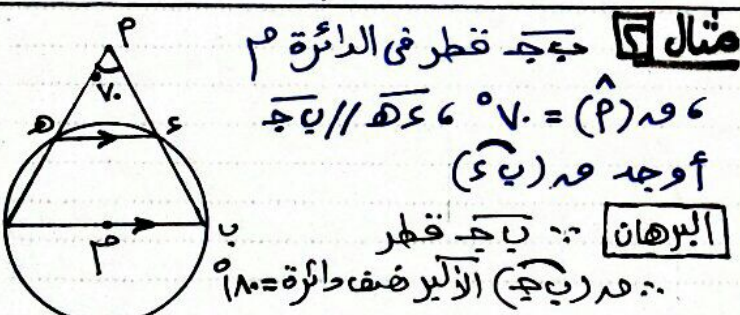 مثال ٢ ب ج قطر فى الدائرة م
، ق (أ) = ٧٠° ، ء ه // ب ج
أوجد ق (ب ء)
البرهان ∵ ب ج قطر
∴ ق (ب ج) الأكبر نصف دائرة = ١٨٠°
أ
٧٠°
ه
ء
م
ب